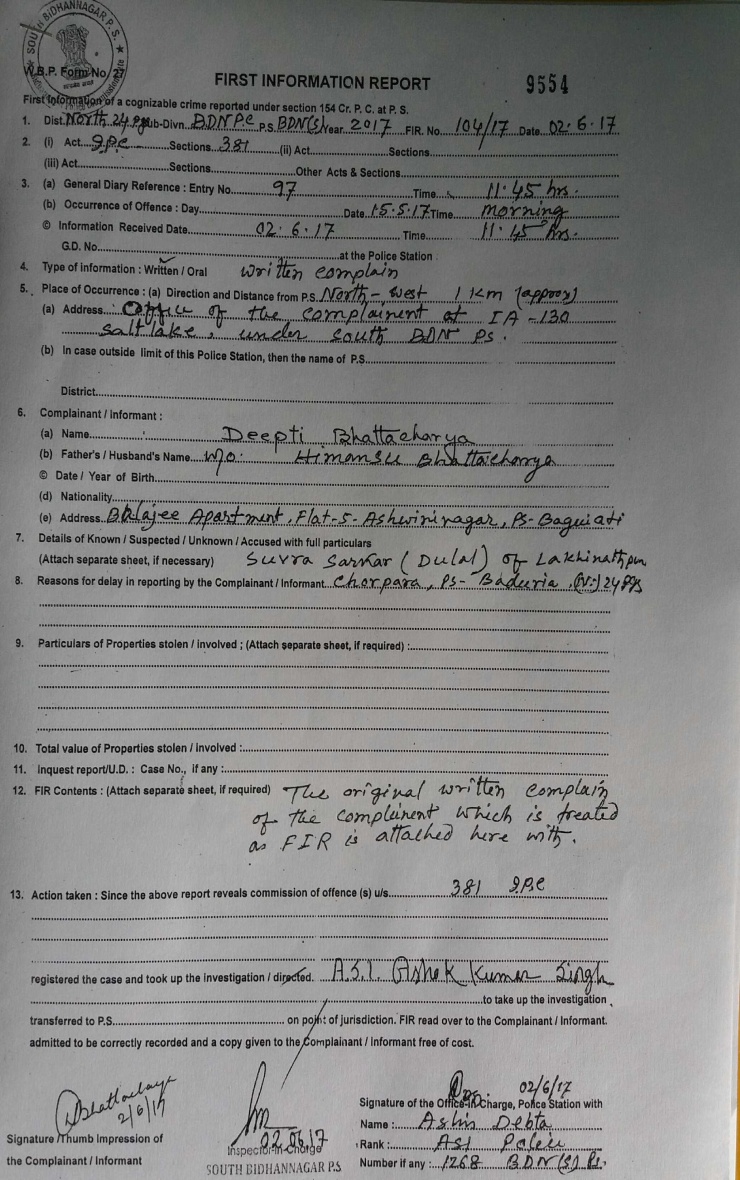 SOUTH BIDHANNAGAR P.S.
W.B.P. Form No. 27
FIRST INFORMATION REPORT 9554
First Information of a cognizable crime reported under section 154 Cr. P. C. at P. S.
1. Dist. North 24 Pgs Sub-Divn. BDN P.C P.S. BDN(S) Year 2017 FIR. No. 104/17 Date 02.6.17
2. (i) Act IPC Sections 381 (ii) Act Sections
(iii) Act Sections Other Acts & Sections
3. (a) General Diary Reference : Entry No. 97 Time 11.45 hrs.
(b) Occurrence of Offence : Day Date 15.5.17 Time morning
© Information Received Date 02.6.17 Time 11.45 hrs.
G.D. No. at the Police Station
4. Type of information : Written / Oral written complain
5. Place of Occurrence : (a) Direction and Distance from P.S. North-west 1 Km (approx)
(a) Address office of the complainent at IA-130
saltlake, under south BDN PS.
(b) In case outside limit of this Police Station, then the name of P.S.
District
6. Complainant / Informant :
(a) Name Deepti Bhattacharya
(b) Father's / Husband's Name w/o. Himansu Bhattacharya
© Date / Year of Birth
(d) Nationality
(e) Address Balajee Apartment, Flat-5-Ashwininagar, Ps-Baguiati
7. Details of Known / Suspected / Unknown / Accused with full particulars
(Attach separate sheet, if necessary) Suvra Sarkar (Dulal) of Lakhinathpur
8. Reasons for delay in reporting by the Complainant / Informant Chorpara, Ps- Baduria, (N) 24 Pgs
9. Particulars of Properties stolen / involved ; (Attach separate sheet, if required) :
10. Total value of Properties stolen / involved :
11. Inquest report/U.D. : Case No., if any :
12. FIR Contents : (Attach separate sheet, if required) The original written complain
of the complainent which is treated
as FIR is attached here with.
13. Action taken : Since the above report reveals commission of offence (s) u/s 381 IPC
registered the case and took up the investigation / directed. A.S.I. Ashok Kumar Singh
to take up the investigation
transferred to P.S. on point of jurisdiction. FIR read over to the Complainant / Informant.
admitted to be correctly recorded and a copy given to the Complainant / Informant free of cost.
DBhattacharya
2/6/17
Signature / Thumb Impression of
the Complainant / Informant
02.06.17
Inspector-in-Charge
SOUTH BIDHANNAGAR P.S
02/6/17
Signature of the Office-in-Charge, Police Station with
Name : Ashis Debta
Rank : ASI Police
Number if any : 1268 BDN(S) Ps.